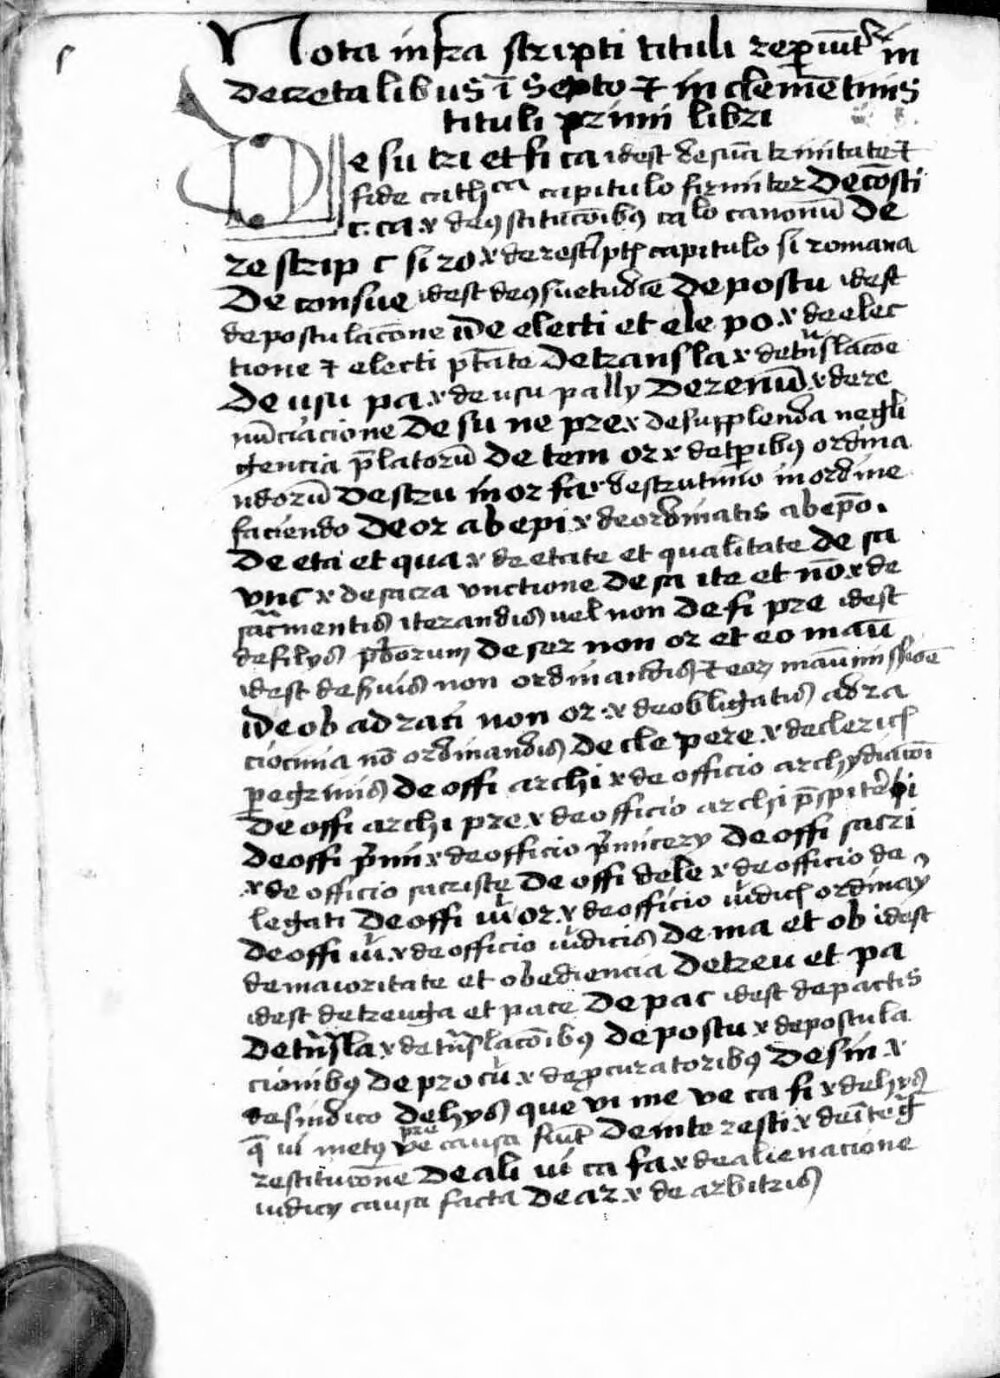 Nota infra scripti tituli reperiūt̃ in
Decretalibus ī Septo ⁊ in clemētinis
tituli primi libri
De su tri et fi ca idest de suā trinitate ⁊
fide cathᶜᵃ capitulo firmiter De cōsti
c. ca x de ꝯstitucōibꝰ ca lo canonū De
re scrip c si ro x de rescͥptꝭ capitulo si romana
De consue idest de ꝯsuetudīe De postu idest
de postulacōne idē electi et ele po x de elec
tione ⁊ electi ptāte De transla x de tͣnslacōe
De usu pa x de usu pally De renū x de re
nūciacione De su ne pre x de supplenda negli
gencia p̄latorū De tem or x de tꝑibꝰ ordina
ndorū De scru in or fa x de scrutinio in ordine
faciendo De or ab epi x de ordinatis ab ep̄o.
De eta et qua x de etate et qualitate De sa
vnc x de sacra vnctione De sa ite et nō x de
sac̃mentis iterandis uel non De fi pre idest
de filys p̄b̄orum De ser non or et eo manū
idest de s̃uis non ordinandis ⁊ eoꝝ manumissiōe
idē ob ad rati non or x de obligatis ad ra
ciocinia nō ordinandis De cle pere x de clericꝭ
ꝑegrinis De offi archi x de officio archydiacōi
De offi archi pre x de officio archi p̄sp̄iteri
De offi p̄mi x de officio p̄micery De offi sacri
x de officio sacriste De offi dele x de officio de
legati De offi iu᷑ or x de officio iu᷑dicꝭ ordinaꝝ
De offi iu᷑ x de officio iu᷑dicis De ma et ob idest
de maioritate et obediencia De treu et pa
idest de treuga et pace De pac idest de pactis
De tͣnsla x de tͣnslacōibꝰ De postu x de postula
cionibꝰ De procū x de ꝓcuratoribꝰ De sin x
de sindico De hys que vi me ve ca fi x de hys
q̄ ui metꝰ ve causa fiūt De inte resti x de īteg̃
restitucōne De ali iu᷑ ca fa x de alienacione
iudicy causa facta De ar x de arbitris